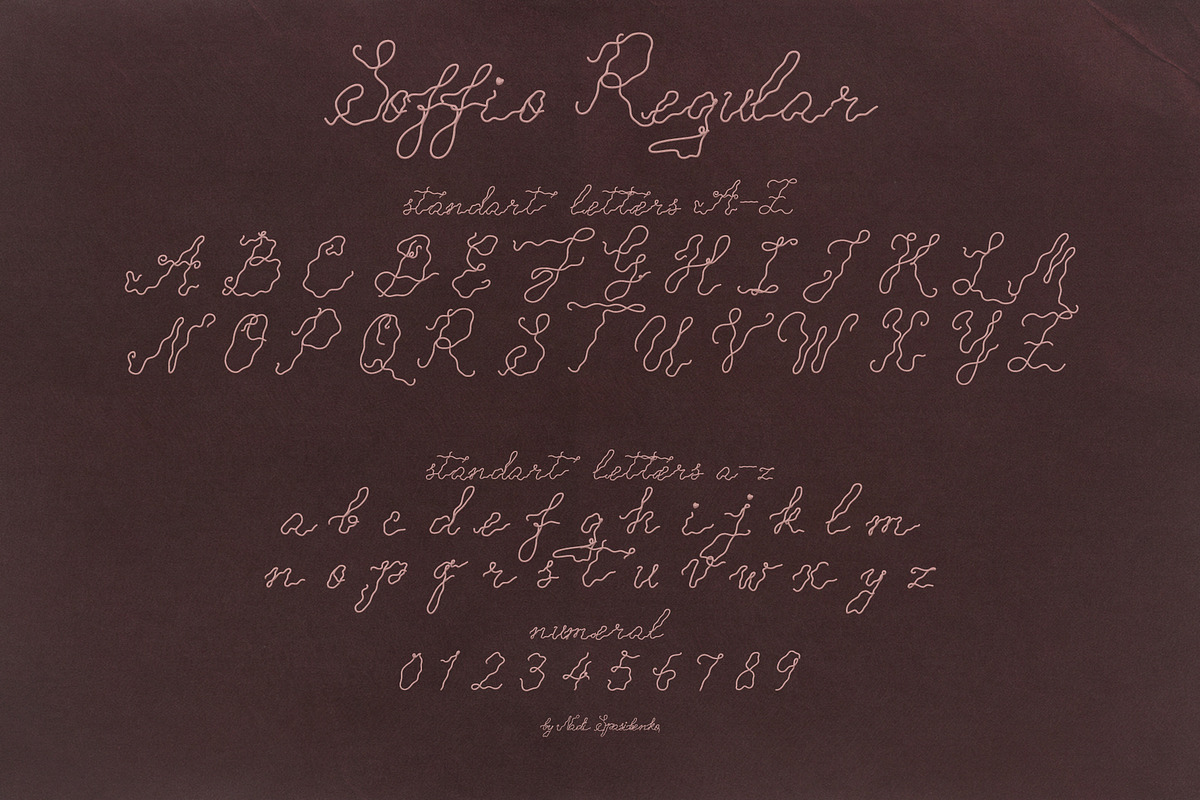 Soffio Regular
standart letters A-Z
A B C D E F G H I J K L M
N O P Q R S T U V W X Y Z
standart letters a-z
a b c d e f g h i j k l m
n o p q r s t u v w x y z
numeral
0 1 2 3 4 5 6 7 8 9
by Nadi Spasibenko